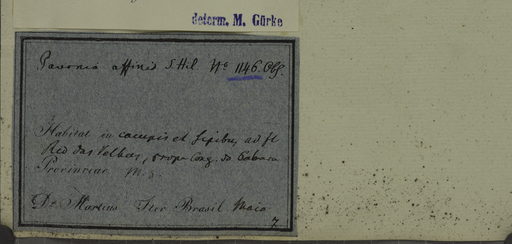 determ. M. Gürke
Pavonia affinis S. Hil. No 1146. Obs.
Habitat in campis et sepibus, ad fl
Rio das Velhas, prope Cong. do
Provinciae M.
Dr Martius Iter Brasil Maio
7